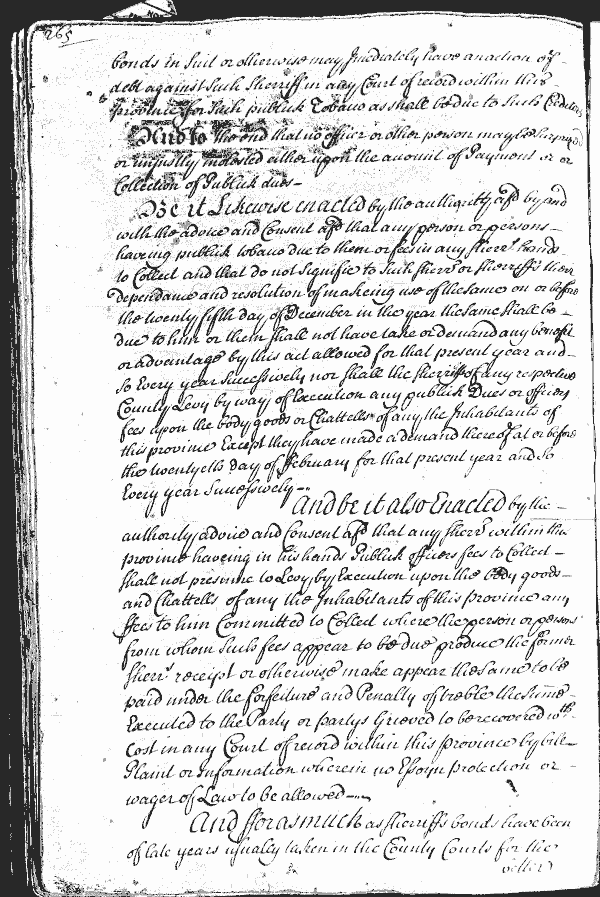 265
bonds in Suit or otherwise may Imediately have an action of
debt against Such Sherriff in any Court of record within this
province for Such publick Tobaco as shall be due to Such
And to the end that no officer or other person may be Surprized
or unjustly molested either upon the account of Payment or or
Collection of Publick dues
Be it Likewise enacted by the authority afd by and
with the advice and Consent afd that any person or persons
having publick tobaco due to them or fees in any Sherrs hands
to Collect and that do not signifie to such Sherrs or Sherriffs their
dependance and resolution of makeing use of the same on or before
the twenty fifth day of December in the year the same shall be
due to him or them shall not have take or demand any benefit
or advantage by this act allowed for that present year and
So Every year Successively nor shall the Sherriffs of any respective
County Levy by way of Execution any publick Dues or officers
fees upon the body goods or Chattells of any the Inhabitants of
this province Except they have made a demand thereof at or before
the twentyeth day of ffebruary for that present year and So
Every year Sucessively
And be it also Enacted by the
authority advice and Consent afd that any Sherr within the
province haveing in his hands Publick officers fees to Collect
shall not presume to Levy by Execution upon the body goods
and Chattells of any the Inhabitants of this Province any
ffees to him Committed to Collect where the person or persons
from whom Such fees appear to be due produce the former
Sherrs receipt or otherwise make appear the same to be
paid under the forfeiture and Penalty of treble the Sume
Executed to the Party or partys Grieved to be recovered wth
Cost in any Court of record within this province by bill
Plaint or Information wherein no Essoyn protection or
wager of Law to be allowed
And fforasmuch as Sherriffs bonds have been
of late years usualy taken in the County Courts for the
better